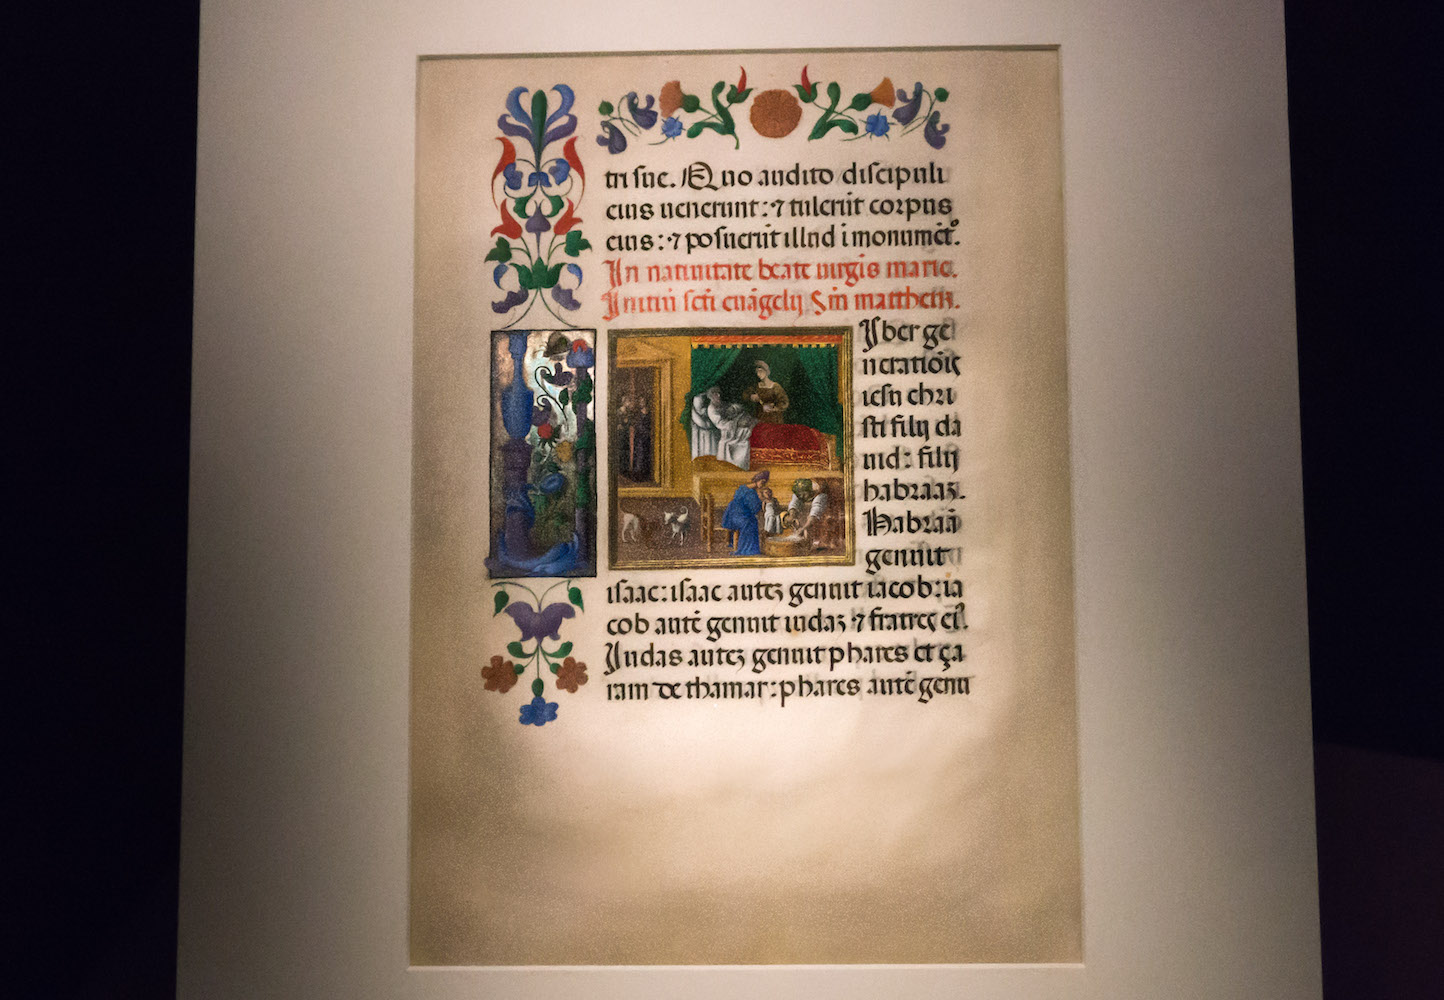 tri sue. Quo audito discipuli
eius uenerunt: ⁊ tulerūt corpus
eius: ⁊ posuerūt illud ī monumēt⁹.
In natiuitate beate uirgīs marie.
Initiū scī euāgelij Sm̄ mattheuꝫ.
Iber ge
neratiōis
iesu chri
sti filij da
uid: filij
habraaꝫ.
Habraā
genuit
isaac: isaac auteꝫ genuit iacob: ia
cob autē genuit iudaꝫ ⁊ fratres ei⁹.
Iudas auteꝫ genuit phares et ça
ram de thamar: phares autē genu